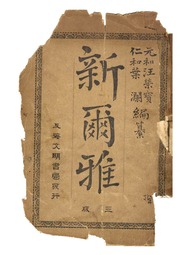 元和汪榮寶
仁和葉瀾編纂
新爾雅
三版
上海文明書局發行